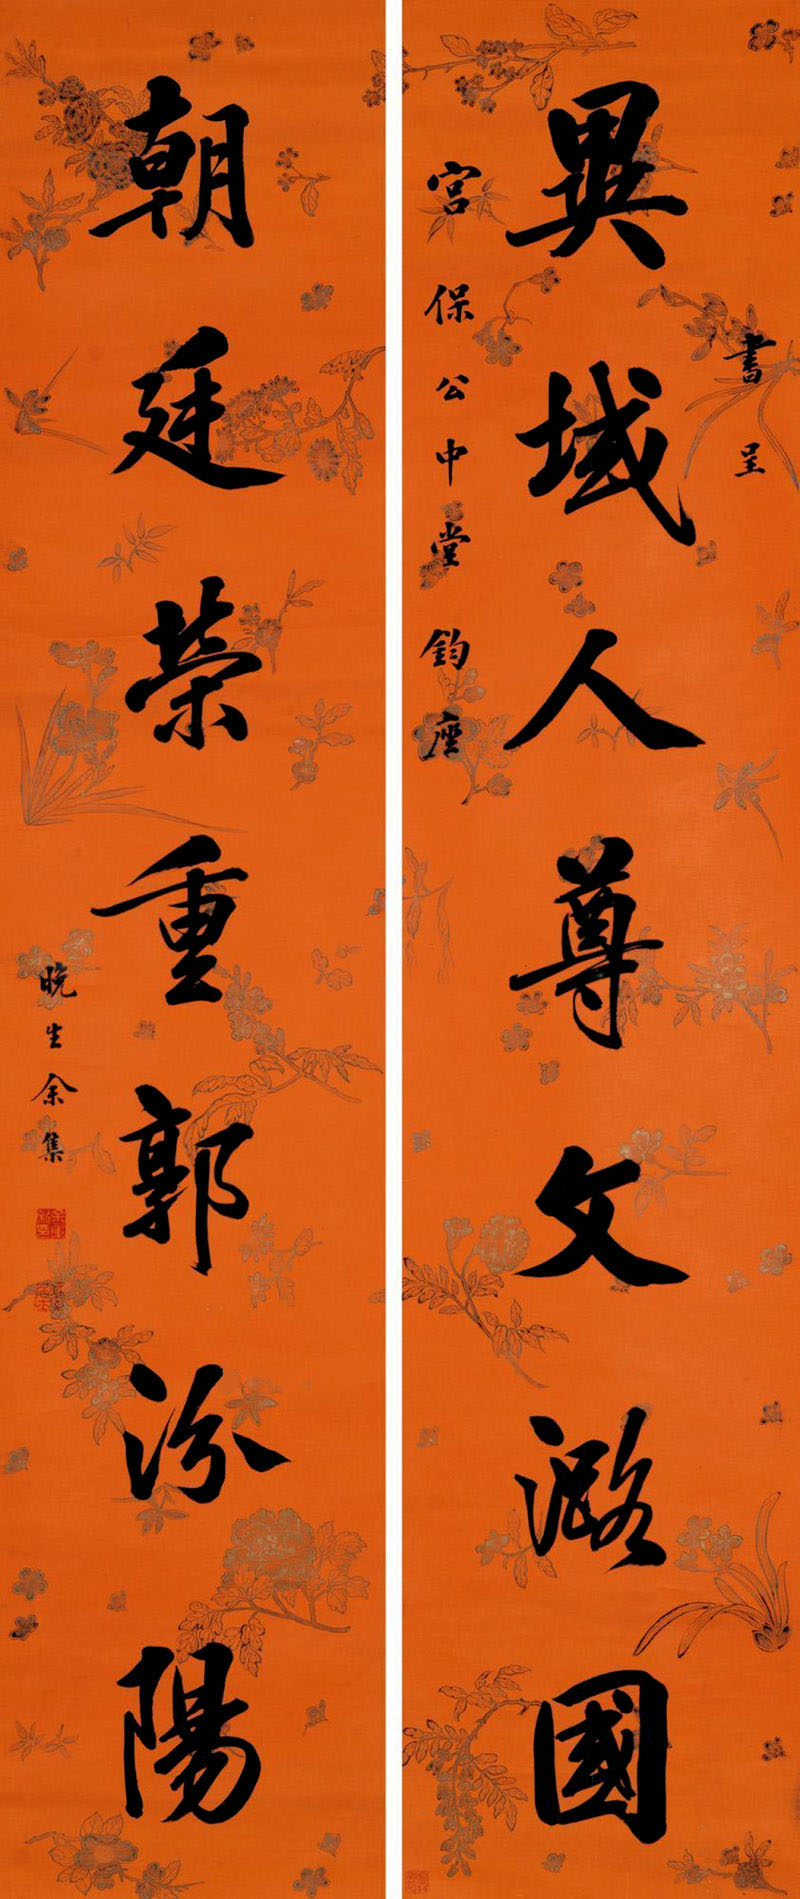 書呈
異域人尊文潞國
宮保公中堂鈞座
朝廷榮重郭汾陽
晚生余集